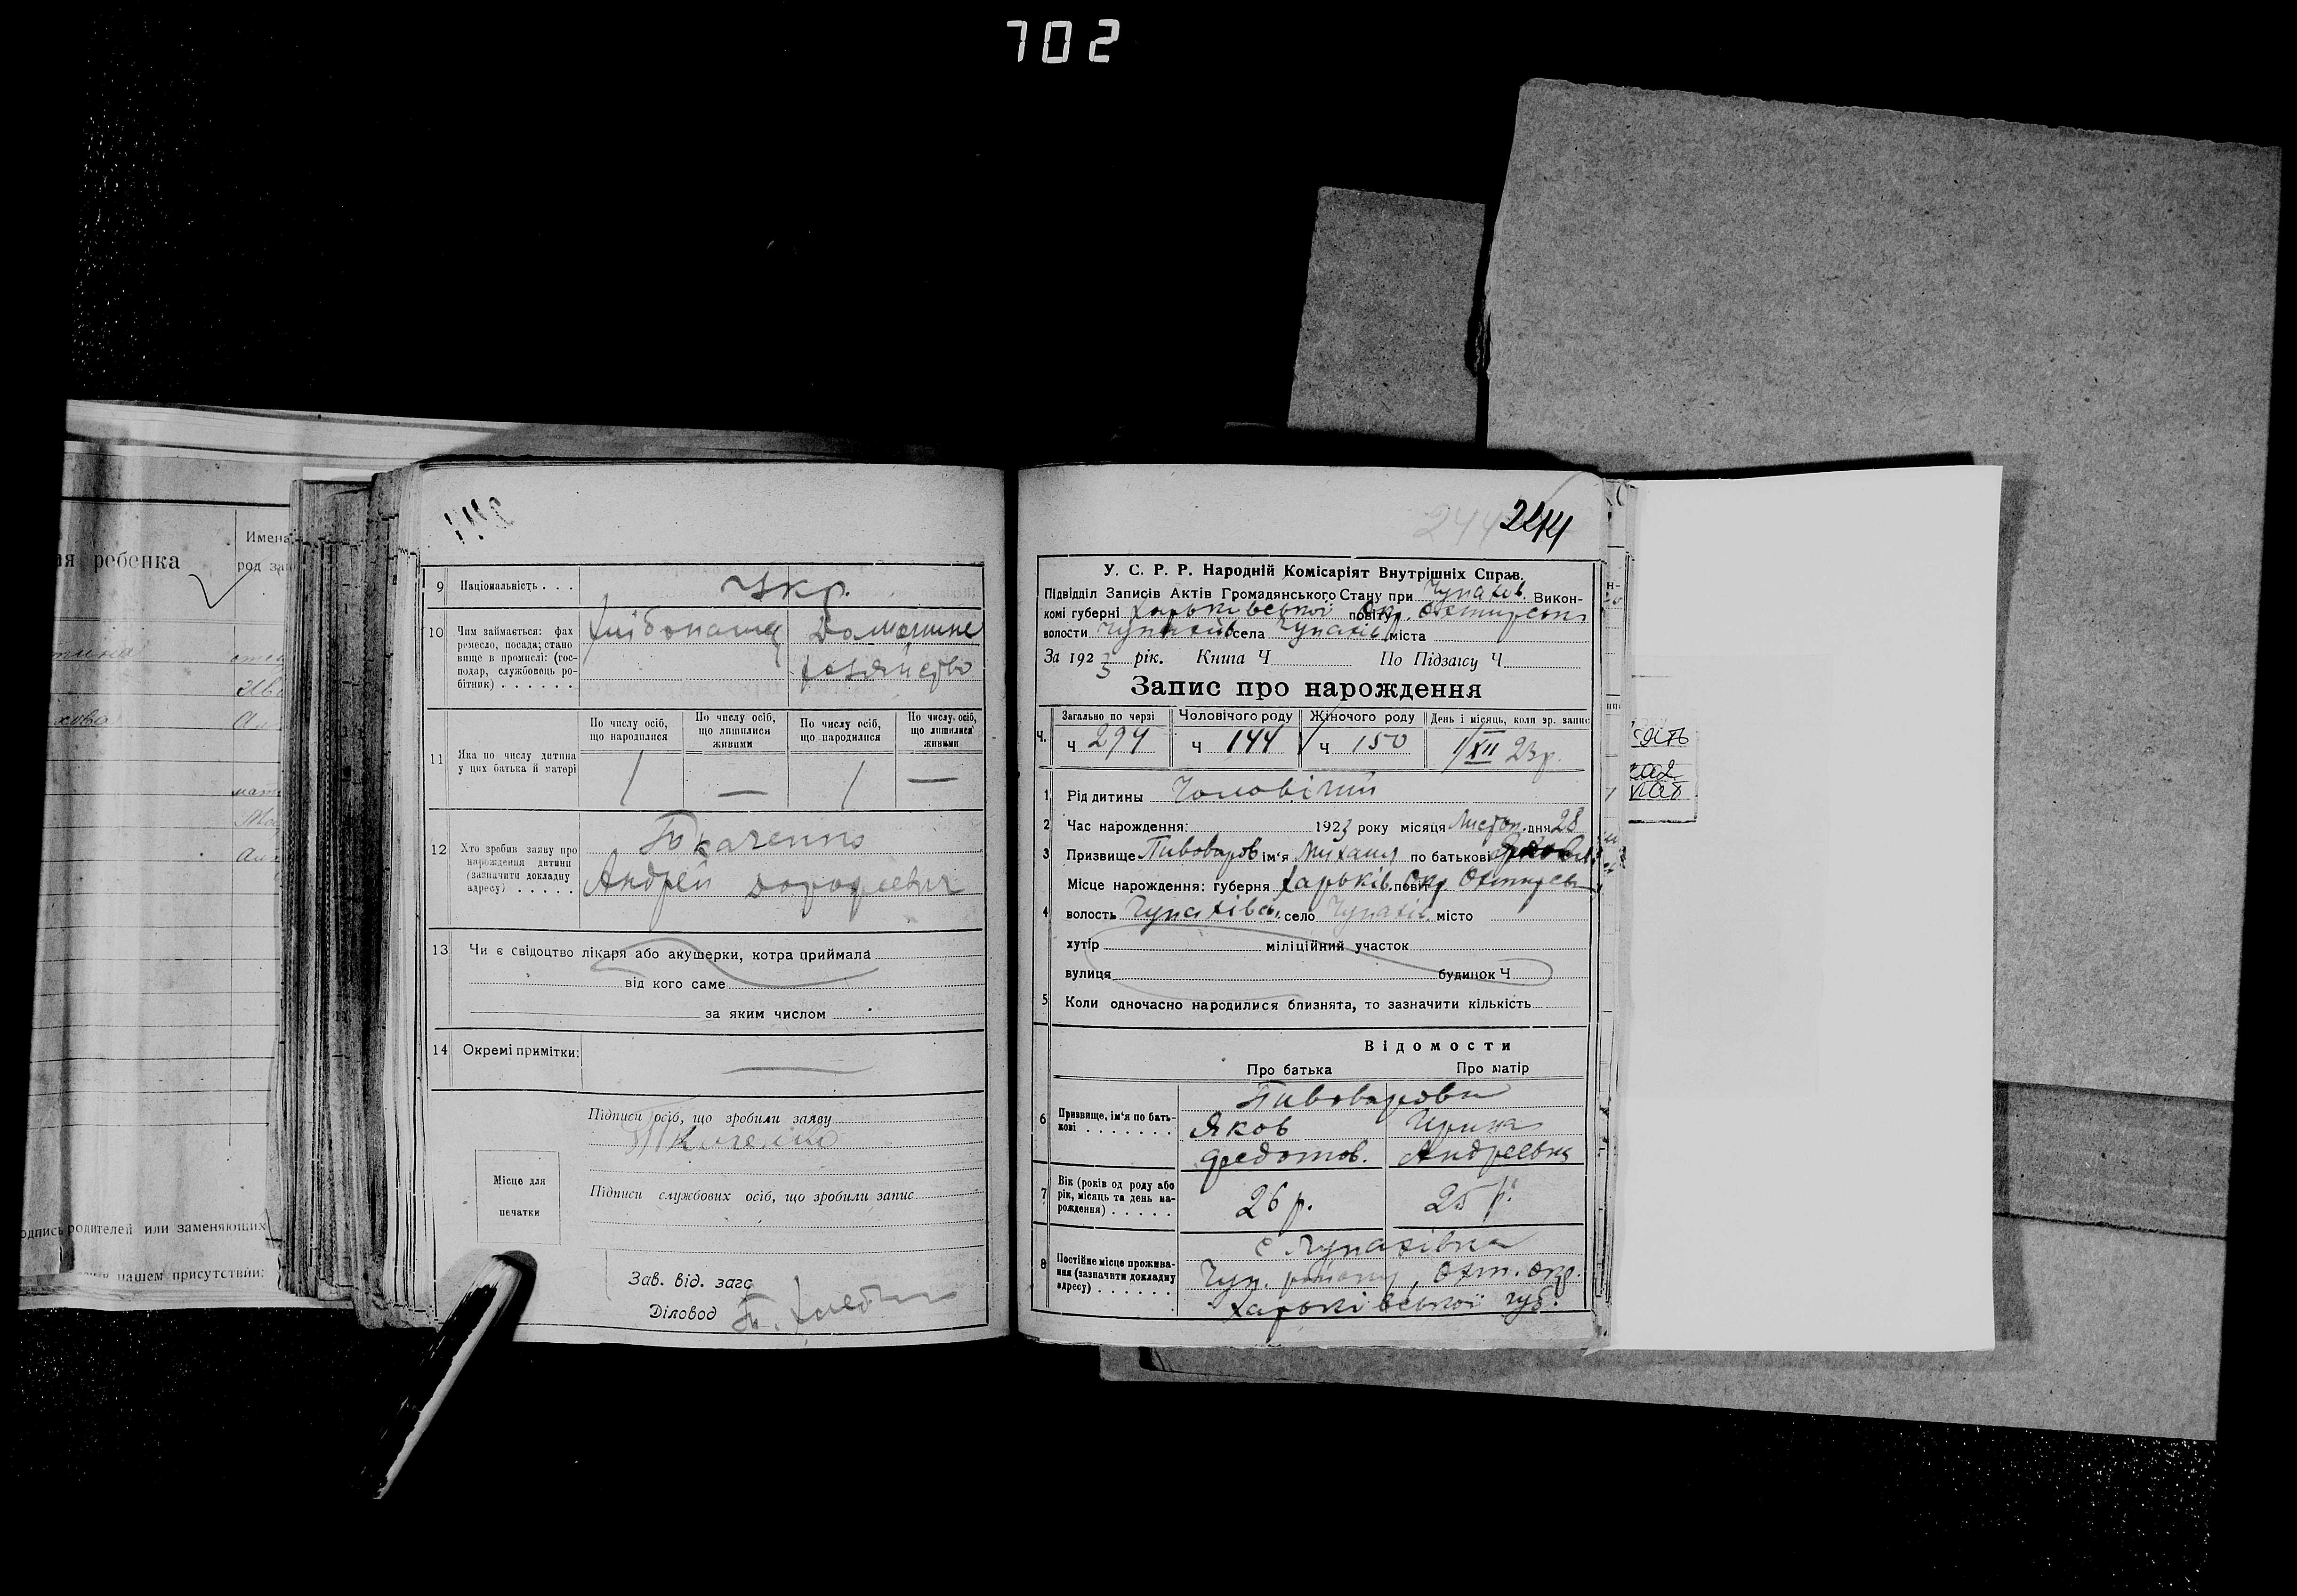 702
ая ребенка
Имена
род за
одпись родителей или заменяющих
нашем присутствии:
9 Національність . . . Укр.
10 Чим займається: фах
ремесло, посада; стано
вище в промислі: (гос-
подар, службовець ро-
бітник) . . . . . .
Хлібопашц Домашнє
хозяйство
11 Яка по числу дитина
у цих батька й матері
По числу осіб,
що народилися
По числу осіб,
що лишилися
живими
По числу осіб,
що народилися
По числу, осіб,
що лишилися
живими
/ — / —
12 Хто зробив заяву про
нарождення дитини
(зазначити докладну
адресу) . . . . .
Ткаченко
Андрей Дорофеевич
13 Чи є свідоцтво лікаря або акушерки, котра приймала
від кого саме
за яким числом
14 Окремі примітки: —
Підписи осіб, що зробили заяву
Підписи службових осіб, що зробили запис
Місце для
печатки
Зав. від. загс
Діловод
244 244
У. С. Р. Р. Народній Комісаріят Внутрішніх Справ.
Підвідділ Записів Актів Громадянського Стану при Чупахів. Викон-
комі губерні Харьківської повіту Окр. Охтирськ
волости Чупахів села Чупахів міста
За 1923 рік. Книга Ч По Підзагсу Ч
Запис про нарождення
Ч. Загально по черзі Чоловічого роду Жіночого роду День і місяць, коли зр. запис
Ч 294 Ч 144 Ч 150 1/XII 23р.
1 Рід дитини Чоловічий
2 Час нарождення: 1923 року місяця Листоп. дня 28
3 Призвище Пивоваров ім'я Михаил по батькові Яковл
Місце нарождення: губерня Харьків. повіт Окр. Охтирськ
4 волость Чупахівськ. село Чупахів. місто
хутір міліційний участок
вулиця будинок Ч
5 Коли одночасно народилися близнята, то зазначити кількість
Відомости
Про батька Про матір
6 Призвище, ім'я по бать-
кові . . . . . . .
Пивоварови
Яков Ирина
Федотов. Андреевна
7 Вік (років од роду або
рік, місяць та день на-
рождення) . . . . .
26 р. 25 р.
8 Постійне місце прожива-
ння (зазначити докладну
адресу) . . . . . .
с Чупахівка
Чуп. району, Охт. окр.
Харьківської губ.